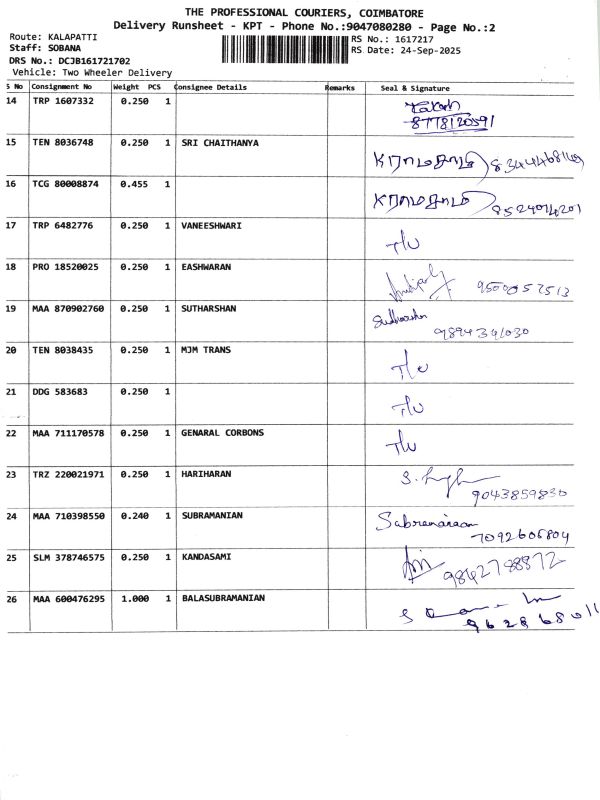 THE PROFESSIONAL COURIERS, COIMBATORE
Delivery Runsheet - KPT - Phone No.:9047080280 - Page No.:2
Route: KALAPATTI
Staff: SOBANA
DRS No.: DCJB161721702
Vehicle: Two Wheeler Delivery
RS No.: 1617217
RS Date: 24-Sep-2025
S No Consignment No Weight PCS Consignee Details Remarks Seal & Signature
14 TRP 1607332 0.250 1
8778120591
15 TEN 8036748 0.250 1 SRI CHAITHANYA
16 TCG 80008874 0.455 1
9524014201
17 TRP 6482776 0.250 1 VANEESHWARI T/U
18 PRO 18520025 0.250 1 EASHWARAN 9500057513
19 MAA 870902760 0.250 1 SUTHARSHAN Sudharshan
9894341030
20 TEN 8038435 0.250 1 MJM TRANS T/U
21 DDG 583683 0.250 1 T/U
22 MAA 711170578 0.250 1 GENARAL CORBONS T/U
23 TRZ 220021971 0.250 1 HARIHARAN
9043859830
24 MAA 710398550 0.240 1 SUBRAMANIAN
7092606804
25 SLM 378746575 0.250 1 KANDASAMI 9842788872
26 MAA 600476295 1.000 1 BALASUBRAMANIAN
962868011